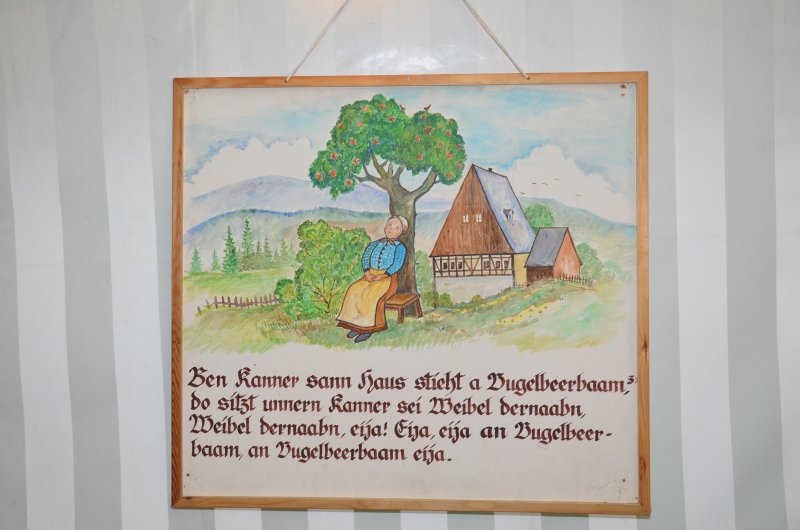 Ben Kanner sann Haus stieht a Vugelbeerbaam, 3.
do sitzt unnern Kanner sei Weibel dernaabn,
Weibel dernaabn, eija! Eija, eija an Vugelbeer-
baam, an Vugelbeerbaam eija.